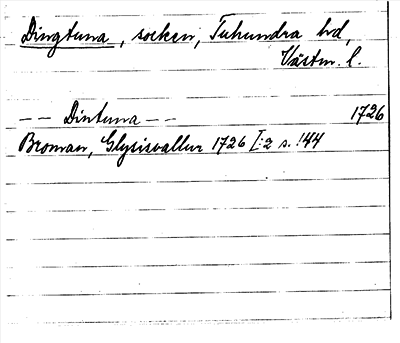 Dingtuna, socken, Tuhundra hd,
Västm. l.
-- Dintuna -- 1726
Broman, Glysisvallur 1726 I:2 s. 144